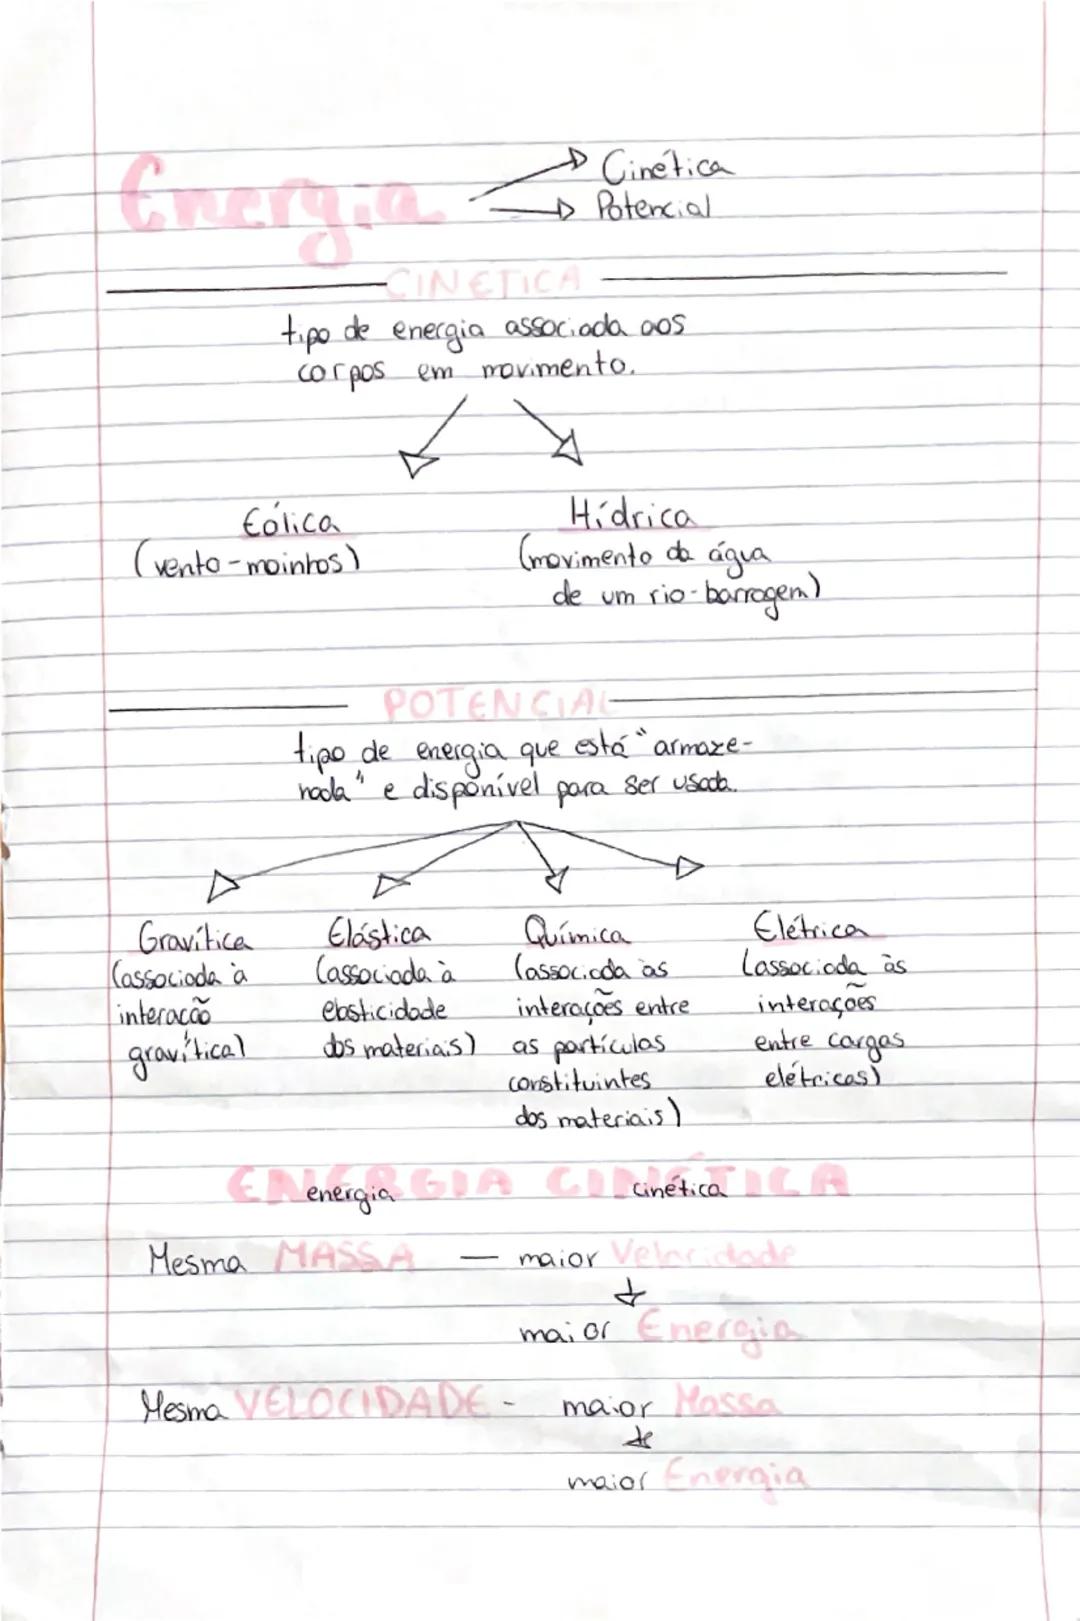 Energia
Cinética
Potencial
CINETICA
tipo de energia associada aos
corpos em movimento.
Eólica
(vento-moinhos)
Hídrica
(movimento da água
de um rio-barragem)
POTENCIAL
tipo de energia que está "armaze-
nada" e disponível para ser usada.
Gravítica
(associada à
interação
gravítica)
Elástica
(associada à
elasticidade
dos materiais)
Química
(associada às
interações entre
as partículas
constituintes
dos materiais)
Elétrica
(associada às
interações
entre cargas
elétricas)
ENERGIA CINÉTICA
energia cinética
Mesma MASSA — maior Velocidade
maior Energia
Mesma VELOCIDADE - maior Massa
maior Energia